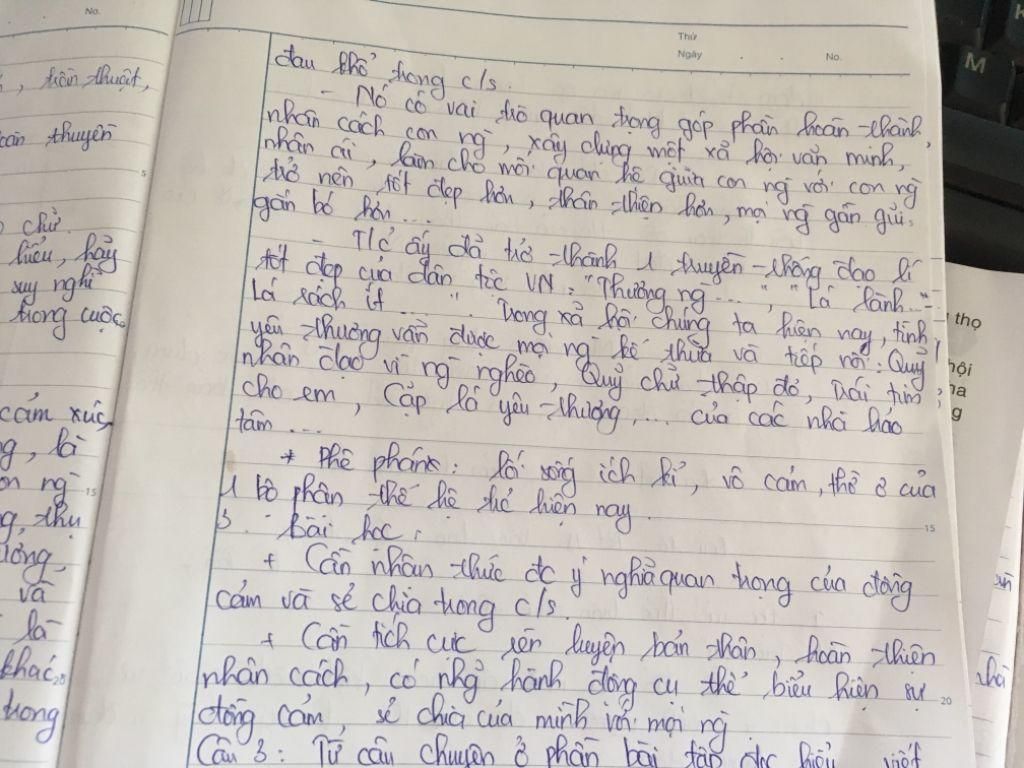 No.
, trần thuật,
thuyền
chử.
hiểu, hãy
suy nghĩ
trong cuộc
cảm xúc
g, là
on ng
15
g, thụ
và
là
khác,
20
trong
Thứ
Ngày
No.
đau khổ trong c/s.
- Nó có vai trò quan trọng góp phần hoàn thành
nhân cách con ng, xây dựng một xã hội văn minh,
nhân ái, làm cho mối quan hệ giữa con ng với con ng
trở nên tốt đẹp hơn, thân thiện hơn, mọi ng gần gủi,
gắn bó hơn...
- T/c ấy đã trở thành 1 truyền thống đạo lí
tốt đẹp của dân tộc VN: "Thương ng ...", "Lá lành...
Lá rách ít ....". Trong xã hội chúng ta hiện nay, tình
yêu thương vẫn được mọi ng kế thừa và tiếp nối: Quỷ
nhân đạo vì ng nghèo, Quỷ chử thập đỏ, Trái tim
cho em, Cặp lá yêu thương,... của các nhà hảo
tâm ...
* Phê phán: lối sống ích kỉ, vô cảm, thờ ơ của
1 bộ phận thế hệ trẻ hiện nay.
15
3. Bài học:
+ Cần nhân thức đc ý nghĩa quan trọng của đồng
cảm và sẻ chia trong c/s.
+ Cần tích cực rèn luyện bản thân, hoàn thiện
nhân cách, có nhg hành động cụ thể biểu hiện sự
20
đồng cảm, sẻ chia của mình với mọi ng
Câu 3: Từ câu chuyện ở phần bài tập đọc hiểu, viết
M
thọ
hội